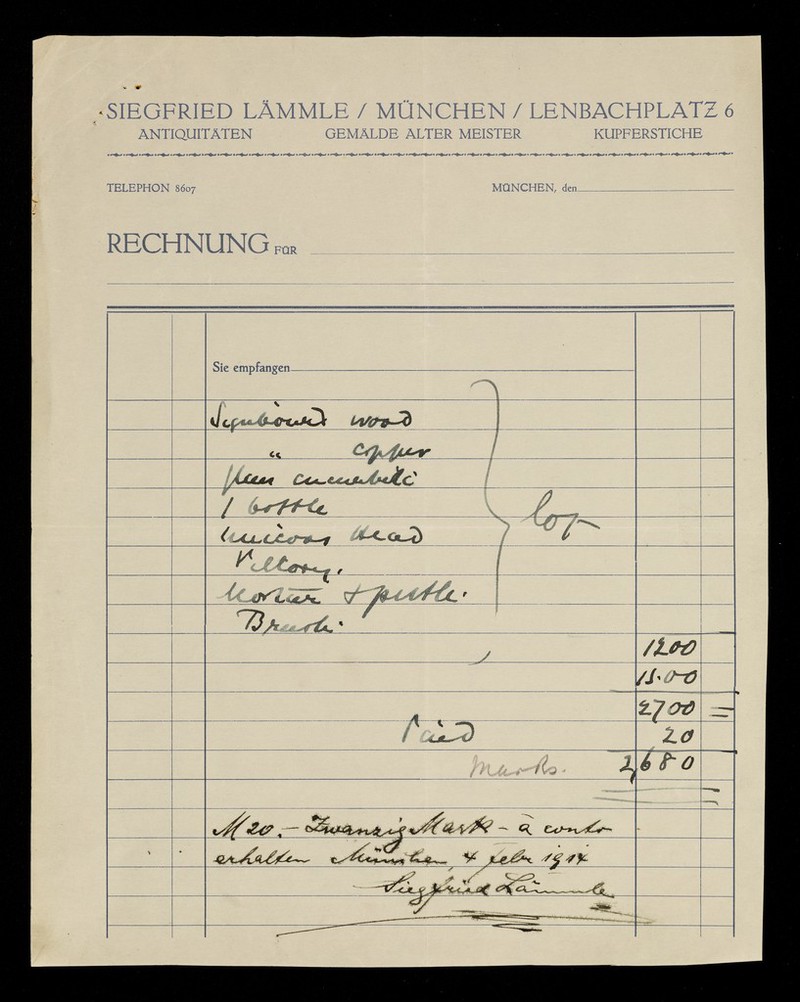 SIEGFRIED LÄMMLE / MÜNCHEN / LENBACHPLATZ 6
ANTIQUITÄTEN GEMÄLDE ALTER MEISTER KUPFERSTICHE
TELEPHON 8607 MÜNCHEN, den
RECHNUNG FÜR
Sie empfangen
Signboard wood
" copper
1 bottle
Unicorn Head
Mortar + pestle.
Brush.
1200
15.00
2700
Paid 20
Marks. 2,680
M 20.– Zwanzig Mark – à conto
erhalten München, 4 febr 1914
Siegfried Lämmle